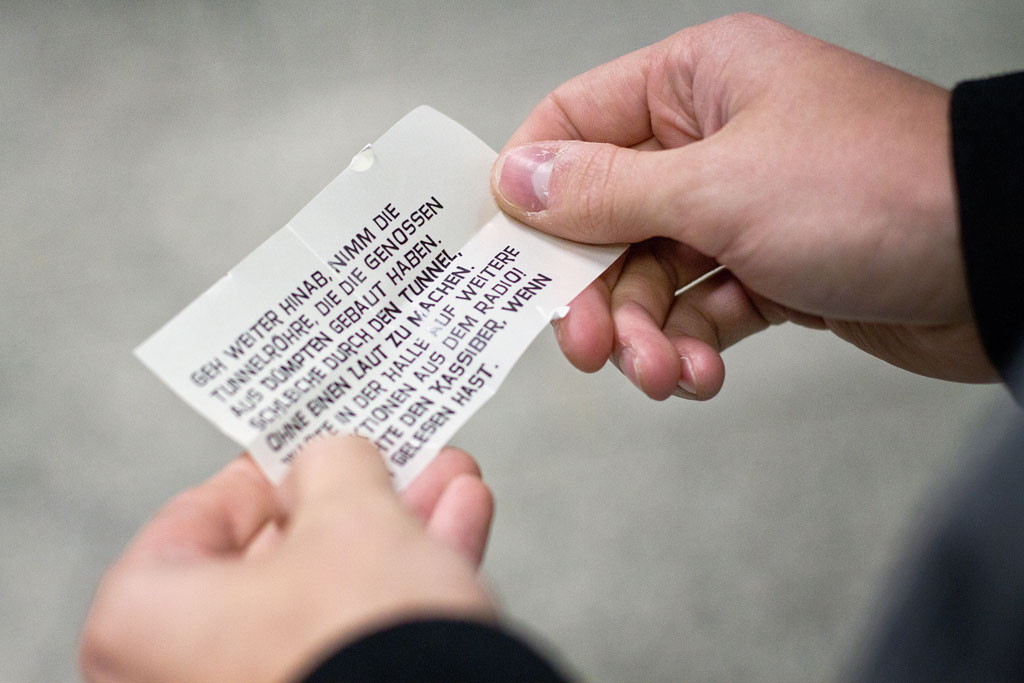 GEH WEITER HINAB, NIMM DIE
TUNNELRÖHRE, DIE DIE GENOSSEN
AUS DOMPTEN GEBAUT HABEN.
SCHLEICHE DURCH DEN TUNNEL,
OHNE EINEN LAUT ZU MACHEN.
IN DER HALLE AUF WEITERE
AUS DEM RADIO!
DEN KASSIBER, WENN
GELESEN HAST.